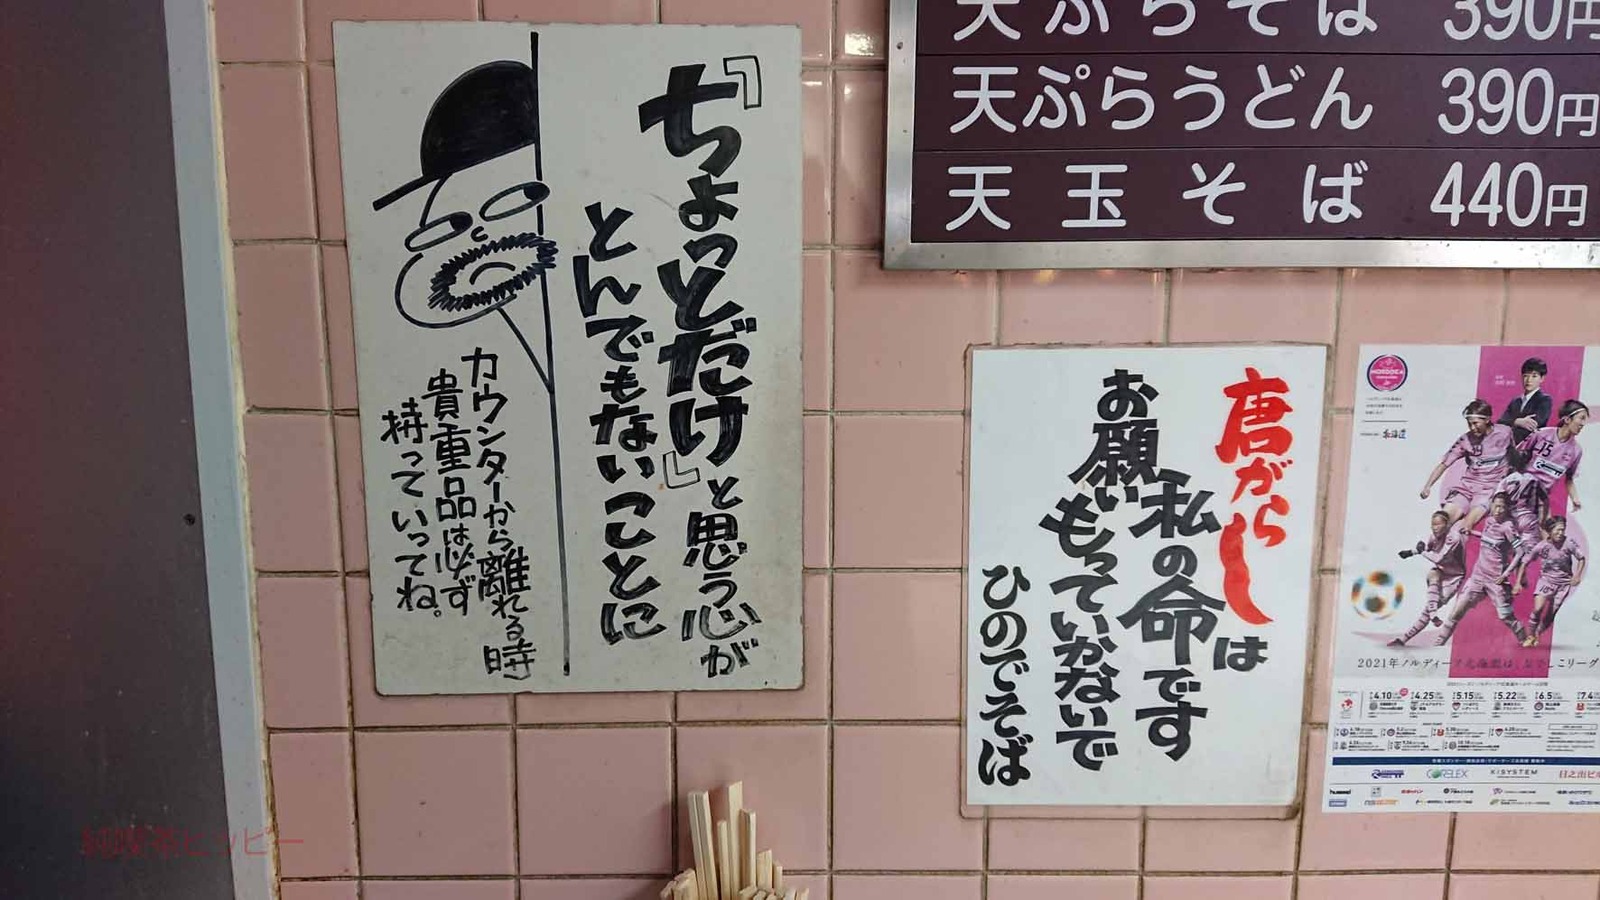 『ちょっとだけ』と思う心が
とんでもないことに
カウンターから離れる時
貴重品は必ず
持っていってね。
天ぷらそば 390円
天ぷらうどん 390円
天玉そば 440円
唐がらしは
私の命です
お願いもっていかないで
ひのでそば
NORDDEA
北海道
2021年ノルディーア北海道は、なでしこリーグ
4.10
4.25
5.15
5.22
6.5
7.4
CORELEX
KISYSTEM
日之出ビル
hummel
純喫茶ヒッピー